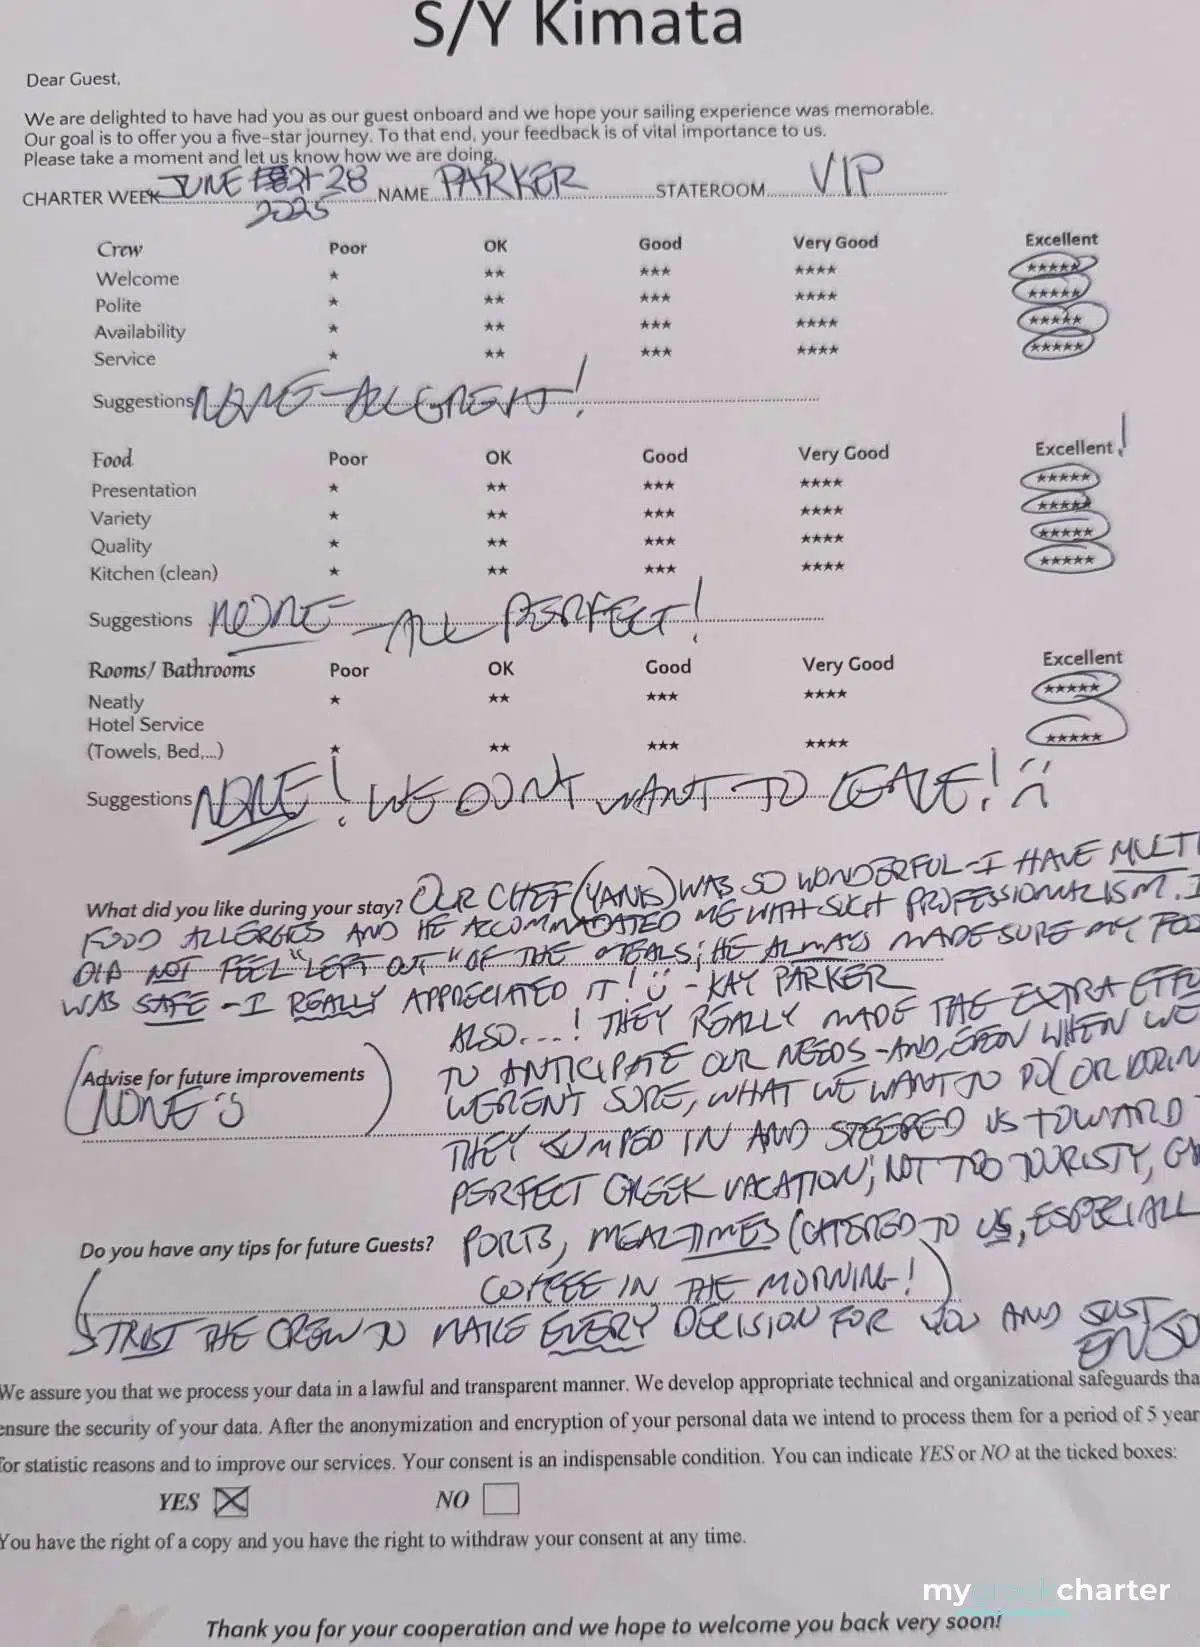 S/Y Kimata
Dear Guest,
We are delighted to have had you as our guest onboard and we hope your sailing experience was memorable.
Our goal is to offer you a five-star journey. To that end, your feedback is of vital importance to us.
Please take a moment and let us know how we are doing.
CHARTER WEEK JUNE 21-28 NAME PARKER STATEROOM VIP
2025
Crew Poor OK Good Very Good Excellent
Welcome ★ ★★ ★★★ ★★★★ ★★★★★
Polite ★ ★★ ★★★ ★★★★ ★★★★★
Availability ★ ★★ ★★★ ★★★★ ★★★★★
Service ★ ★★ ★★★ ★★★★ ★★★★★
Suggestions NONE - ALL GREAT!
Food Poor OK Good Very Good Excellent!
Presentation ★ ★★ ★★★ ★★★★ ★★★★★
Variety ★ ★★ ★★★ ★★★★ ★★★★★
Quality ★ ★★ ★★★ ★★★★ ★★★★★
Kitchen (clean) ★ ★★ ★★★ ★★★★ ★★★★★
Suggestions NONE - ALL PERFECT!
Rooms/ Bathrooms Poor OK Good Very Good Excellent
Neatly ★ ★★ ★★★ ★★★★ ★★★★★
Hotel Service
(Towels, Bed,...) ★ ★★ ★★★ ★★★★ ★★★★★
Suggestions NONE! WE DONT WANT TO LEAVE! :(
What did you like during your stay? OUR CHEF (YANIS) WAS SO WONDERFUL - I HAVE MULTI
FOOD ALLERGIES AND HE ACCOMMADATED ME WITH SUCH PROFESSIONALISM. I
DID NOT FEEL "LEFT OUT" OF THE MEALS; HE ALWAYS MADE SURE MY FOO
WAS SAFE - I REALLY APPRECIATED IT! :) - KAY PARKER
ALSO....! THEY REALLY MADE THE EXTRA EFFO
TO ANTICIPATE OUR NEEDS - AND, EVEN WHEN WE
Advise for future improvements
(NONE :))
WEREN'T SURE, WHAT WE WANT TO DO (OR DRIN
THEY JUMPED IN AND STEERED US TOWARD
PERFECT GREEK VACATION; NOT TOO TOURISTY,
Do you have any tips for future Guests?
PORTS, MEALTIMES (CATERED TO US, ESPECIALL
COFFEE IN THE MORNING!)
TRUST THE CREW TO MAKE EVERY DECISION FOR YOU AND JUST
ENJO
We assure you that we process your data in a lawful and transparent manner. We develop appropriate technical and organizational safeguards tha
ensure the security of your data. After the anonymization and encryption of your personal data we intend to process them for a period of 5 year
for statistic reasons and to improve our services. Your consent is an indispensable condition. You can indicate YES or NO at the ticked boxes:
YES ☒ NO ☐
You have the right of a copy and you have the right to withdraw your consent at any time.
mygreekcharter
Thank you for your cooperation and we hope to welcome you back very soon!